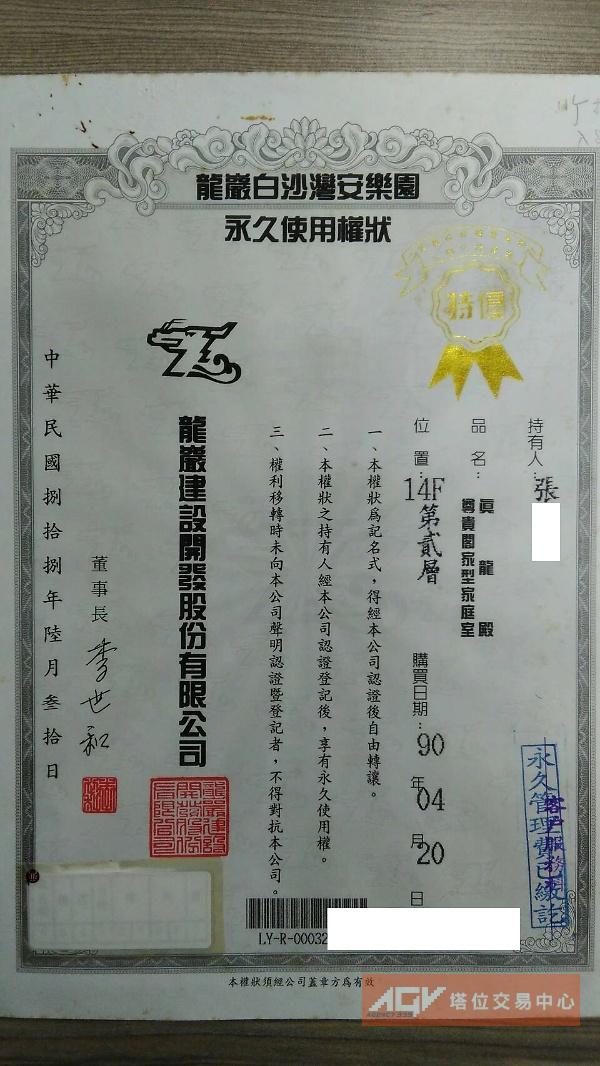 龍巖白沙灣安樂園
永久使用權狀
特優
持有人：張
品名：真龍殿
尊貴閣家型家庭室
位置：14F第貳層
購買日期：90年04月20日
一、本權狀為記名式，得經本公司認證後自由轉讓。
二、本權狀之持有人經本公司認證登記後，享有永久使用權。
三、權利移轉時未向本公司聲明認證暨登記者，不得對抗本公司。
龍巖建設開發股份有限公司
董事長 李世和
中華民國捌拾捌年陸月叁拾日
永久管理費已繳訖
LY-R-00032
本權狀須經公司蓋章方為有效
AGV 塔位交易中心